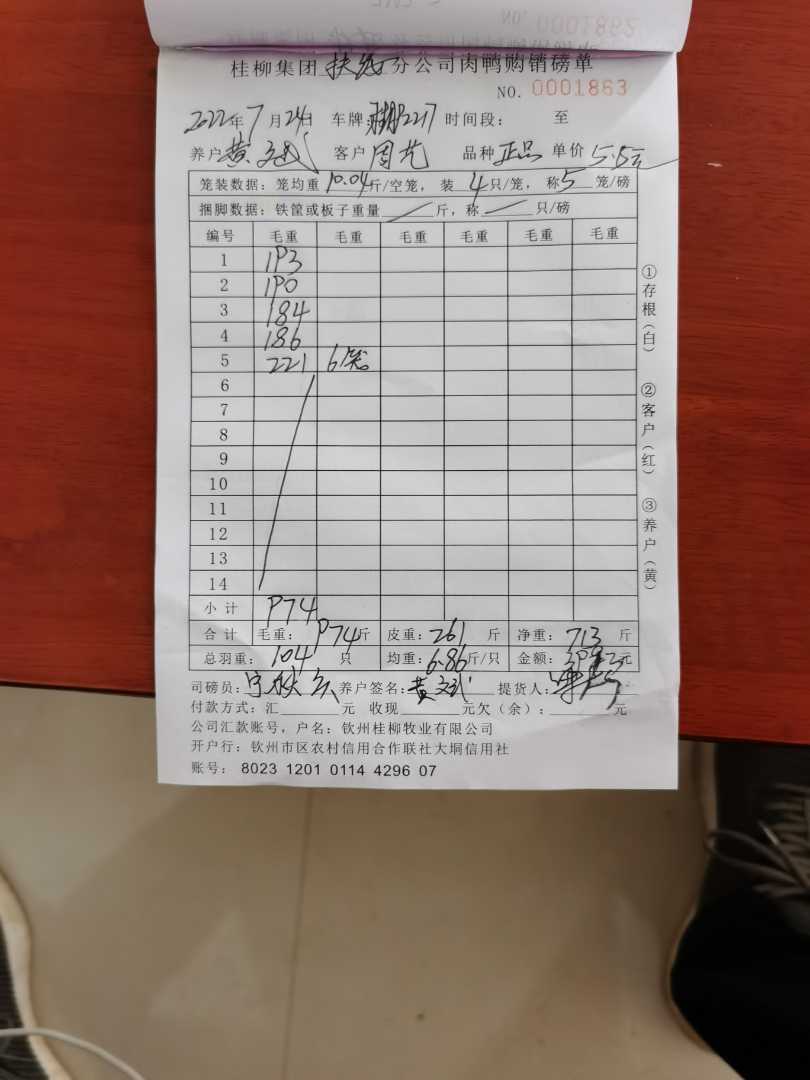 NO. 0001862
桂柳集团扶绥分公司肉鸭购销磅单
NO. 0001863
2022年7月24日 车牌: 2217 时间段: 至
养户 黄文武 客户 周艺 品种 正品 单价 5.5元
笼装数据: 笼均重 10.04斤/空笼, 装 4只/笼, 称5 笼/磅
捆脚数据: 铁筐或板子重量 / 斤, 称 / 只/磅
编号 毛重 毛重 毛重 毛重 毛重 毛重
1 193
2 190
3 184
4 186
5 221 6笼
6
7
8
9
10
11
12
13
14
小计 974
合计 毛重: 974斤 皮重: 261 斤 净重: 713 斤
总羽重: 104 只 均重: 6.86斤/只 金额: 元
司磅员: 养户签名: 黄文武 提货人:
付款方式: 汇 元 收现 元欠(余): 元
公司汇款账号, 户名: 钦州桂柳牧业有限公司
开户行: 钦州市区农村信用合作联社大垌信用社
账号: 8023 1201 0114 4296 07
①存根(白) ②客户(红) ③养户(黄)